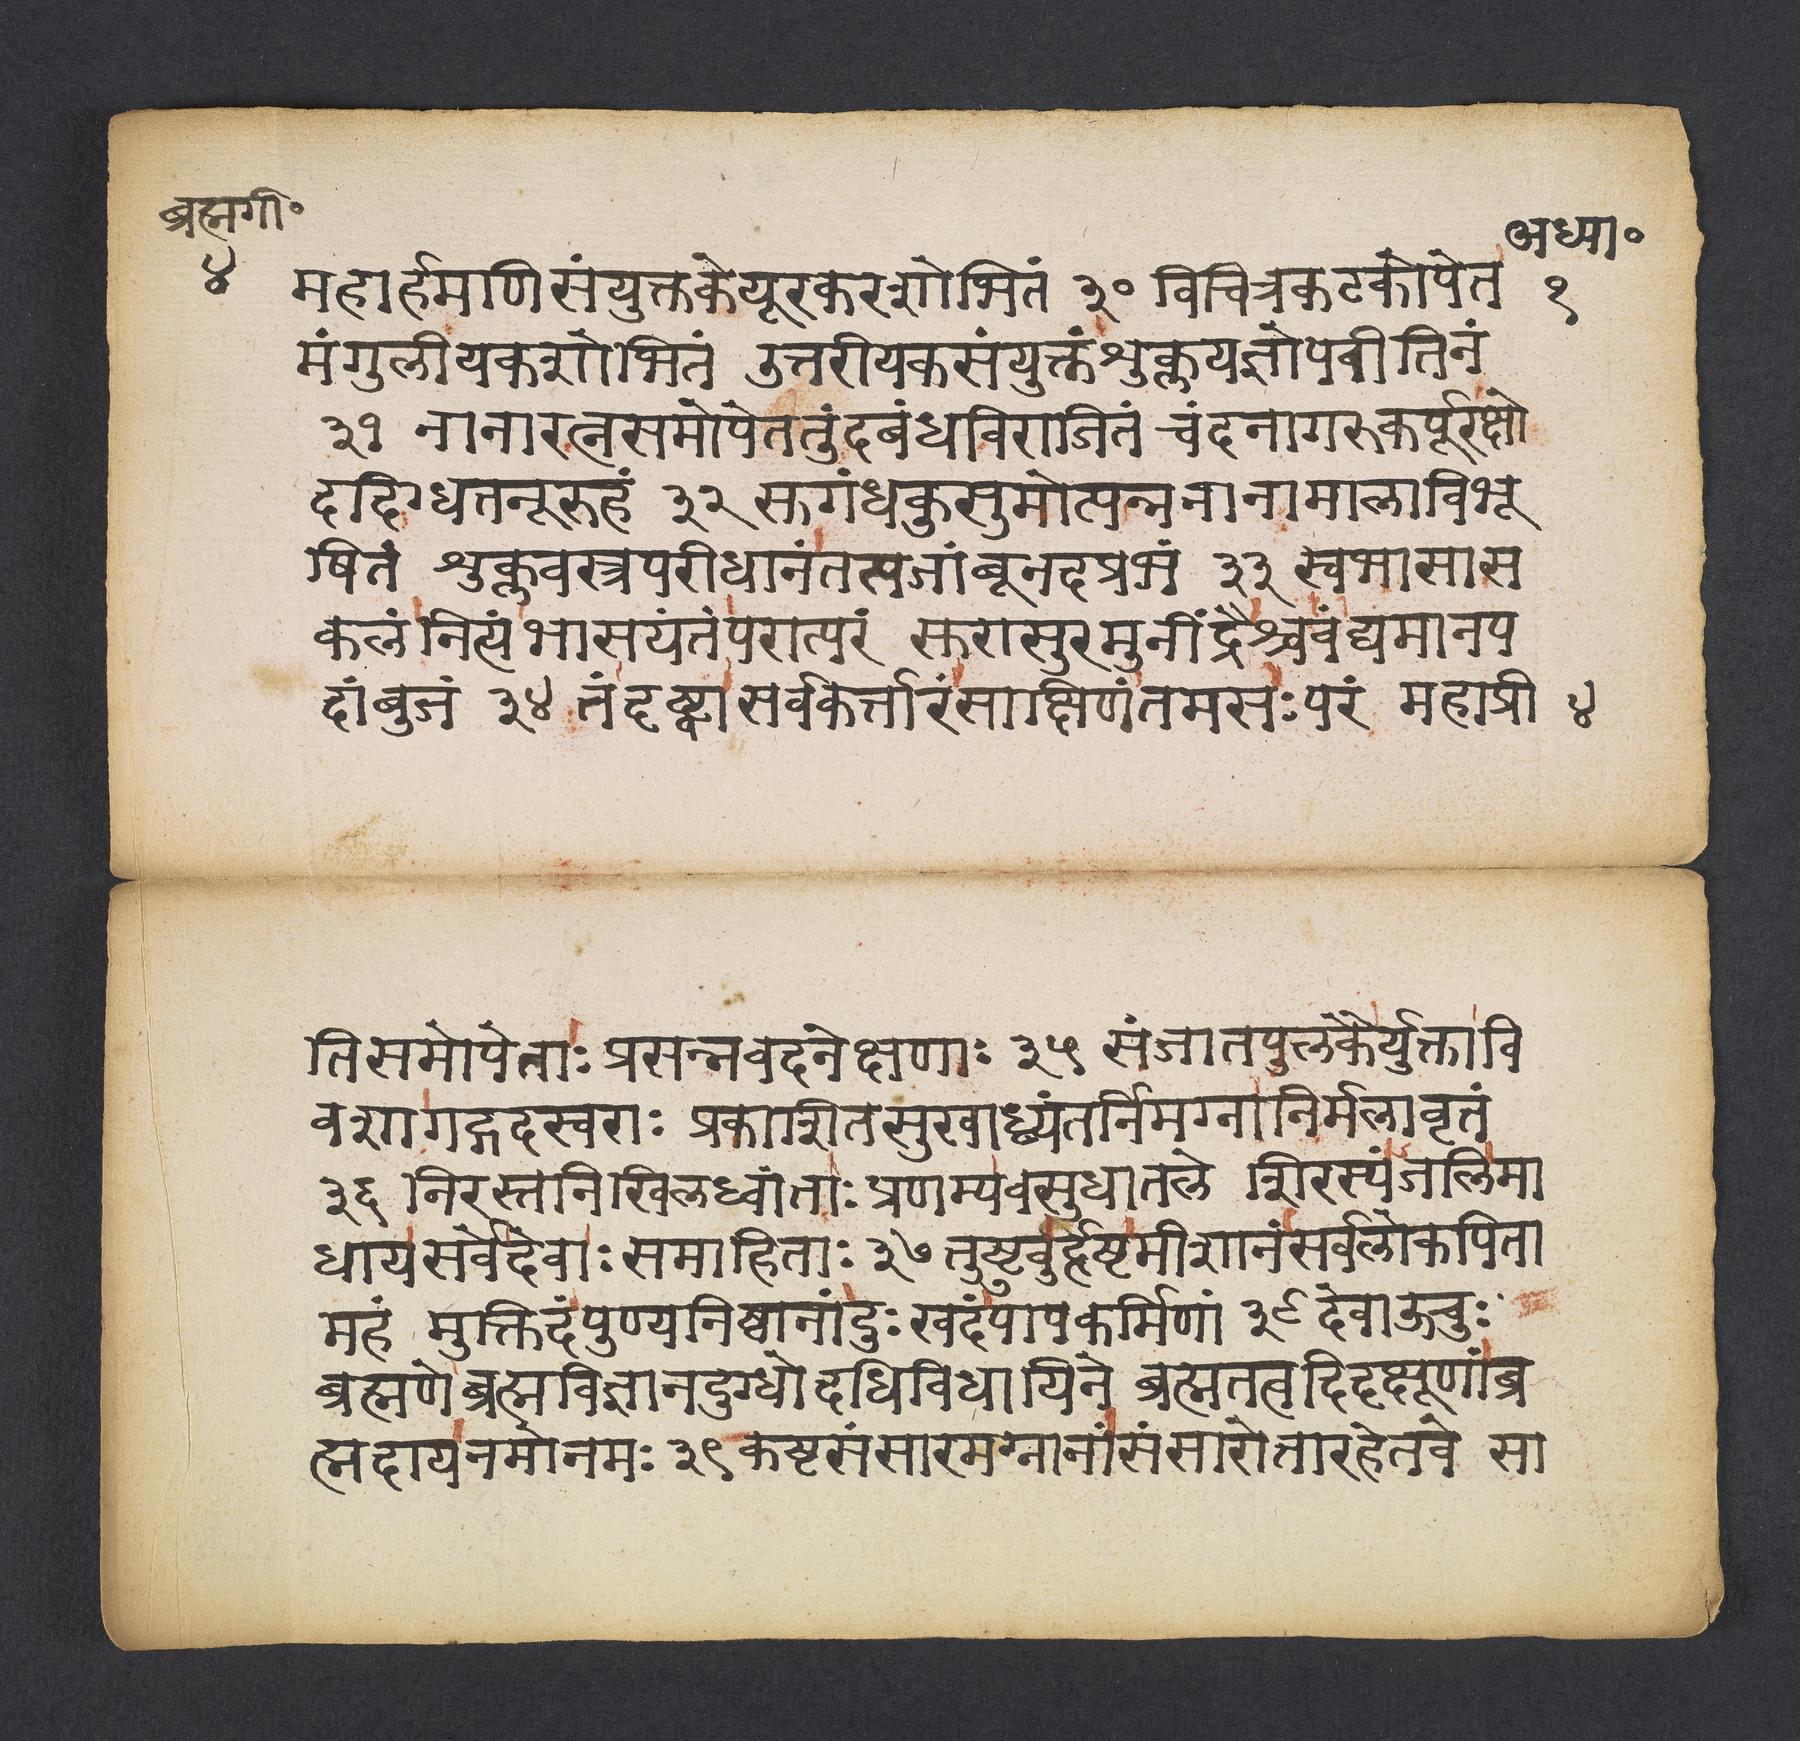 ब्रह्मगी॰
अध्या॰
४ महार्हमणिसंयुक्तकेयूरकरशोभितं ३० विचित्रकटकोपेत १
मंगुलीयकशोभितं उत्तरीयकसंयुक्तंशुक्लयज्ञोपवीतिनं
३१ नानारत्नसमोपेततुंदबंधविराजितं चंदनागरुकर्पूरक्षो
ददिग्धतनूरुहं ३२ सुगंधकुसुमोत्पन्ननानामालाविभू
षितं शुक्लवस्त्रपरीधानंतत्पजांबूनदप्रभं ३३ स्वभासास
कलंनित्यंभासयंतंपरात्परं सुरासुरमुनींद्रैश्चवंद्यमानप
दांबुजं ३४ तंदृष्ट्वासर्वकर्त्तारंसाक्षिणंतमसःपरं महाप्री ४
तिसमोपेताः प्रसन्नवदनेक्षणाः ३५ संजातपुलकैर्युक्तावि
वशागद्गदस्वराः प्रकाशितसुखाब्ध्यंतर्निमग्नानिर्मलावृतं
३६ निरस्तनिखिलध्वांताः प्रणम्यवसुधातले शिरस्यंजलिमा
धायसर्वेदेवाः समाहिताः ३७ तुष्टुवुर्हृष्टमीशानंसर्वलोकपिता
महं मुक्तिदंपुण्यनिष्ठानांदुःखदंपापकर्मिणां ३८ देवाऊचुः
ब्रह्मणेब्रह्मविज्ञानदुग्धोदधिविधायिने ब्रह्मतत्वदिदृक्षूणांब्र
ह्मदायनमोनमः ३९ कष्टसंसारमग्नानांसंसारोत्तारहेतवे सा